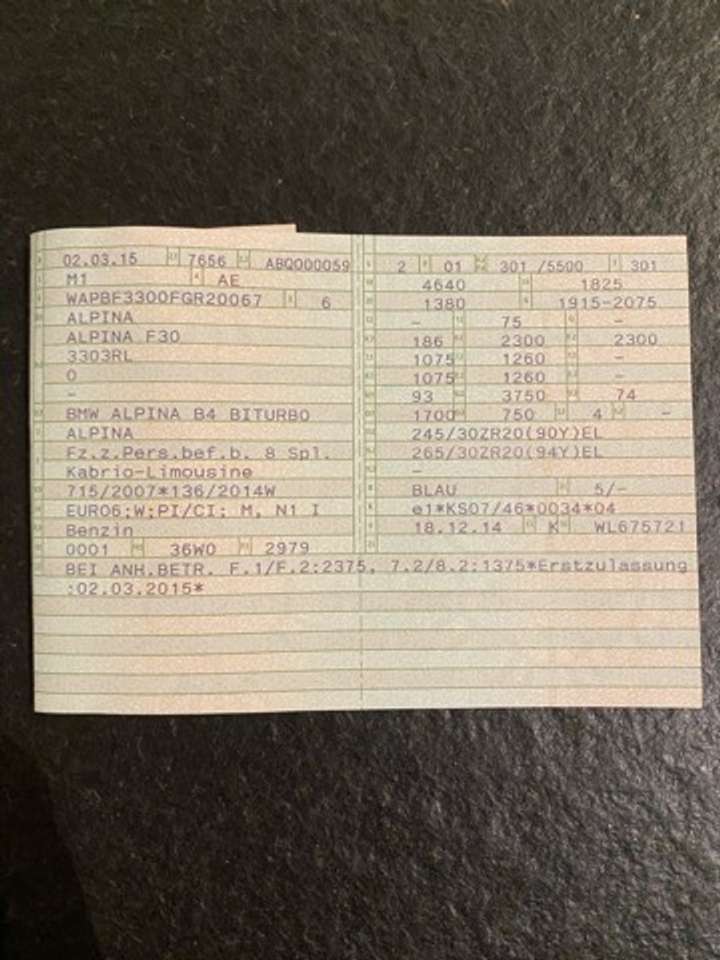 02.03.15 7656 ABQ000059
M1 AE
WAPBF3300FGR20067 6
ALPINA
ALPINA F30
3303RL
0
-
BMW ALPINA B4 BITURBO
ALPINA
Fz.z.Pers.bef.b. 8 Spl.
Kabrio-Limousine
715/2007*136/2014W
EURO6;W;PI/CI; M, N1 I
Benzin
0001 36W0 2979
2 01 301 /5500 301
4640 1825
1380 1915-2075
- 75 -
186 2300 2300
1075 1260 -
1075 1260 -
93 3750 74
1700 750 4 -
245/30ZR20(90Y)EL
265/30ZR20(94Y)EL
-
BLAU 5/-
e1*KS07/46*0034*04
18.12.14 K WL675721
BEI ANH.BETR. F.1/F.2:2375, 7.2/8.2:1375*Erstzulassung
:02.03.2015*